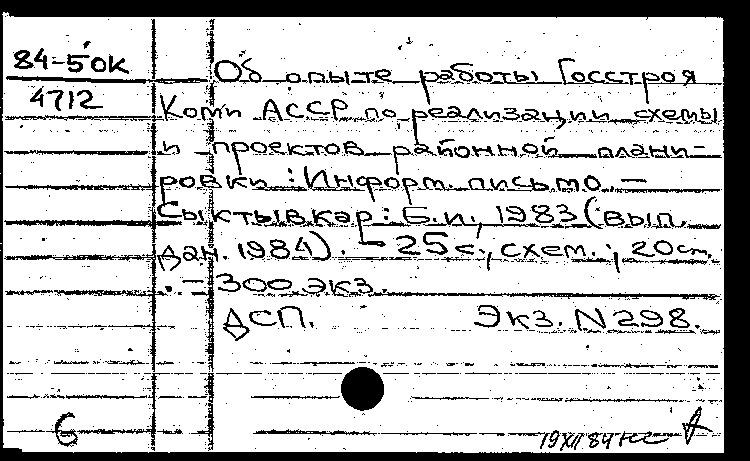 84-5 ОК
4712
Об опыте работы Госстроя
Коми АССР по реализации схемы
и проектов районной плани-
ровки : Информ. письмо. —
Сыктывкар : Б. и., 1983 (вып.
дан. 1984). — 25 с., схем. ; 20 см.
. — 300 экз.
ДСП. Экз. N 298.
6
19 XII 84